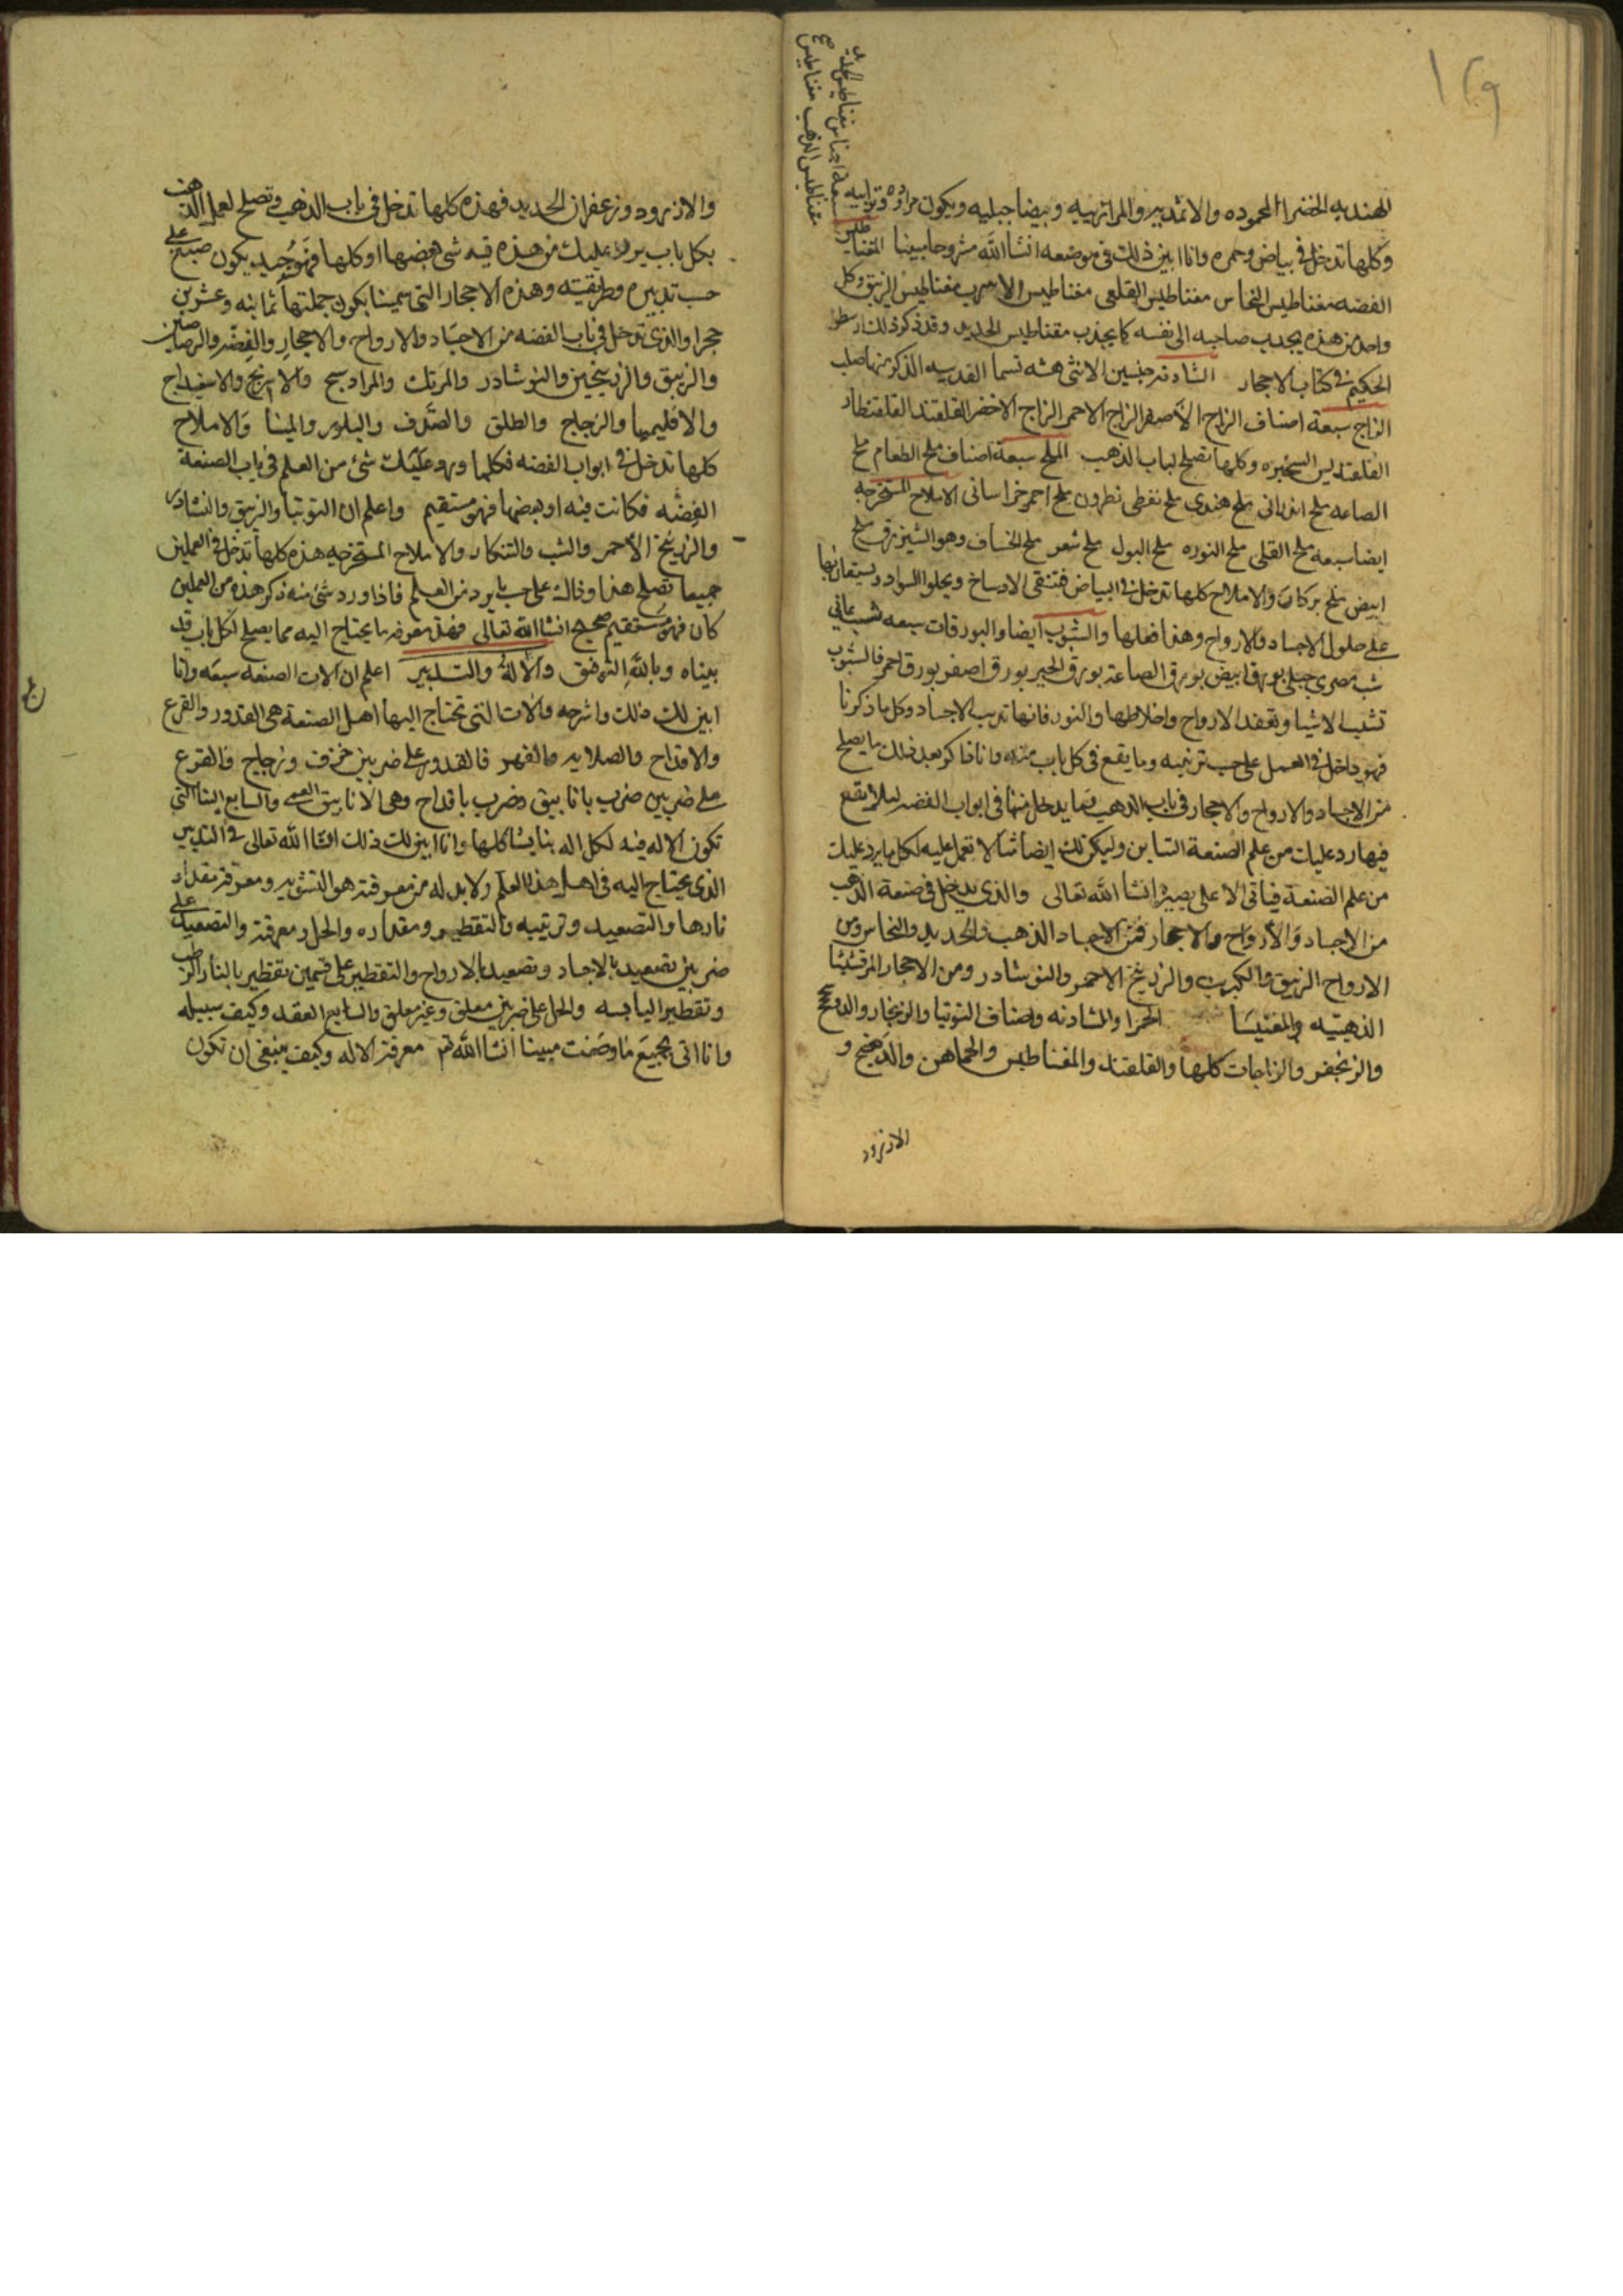 ١٢٩
سبعة اجناس مغناطيس الحديد
مغناطيس الذهب مغناطيس
الهنديه الخضرا المحموده والاثمديه والمرازيبيه وبيضا جبليه ويكون مراده وترابيه
وكلها تدخل في بياض وحمره وانا ابين ذلك في موضعه انشا الله مشروحا مبينا المغناطيس
الفضه مغناطيس النحاس مغناطيس القلعى مغناطيس الاسرب مغناطيس الزيبق وكل
واحد من هذه يجدب صاحبه الى نفسه كما يجذب مقناطيس الحديد وقد ذكر ذلك ارسطو
الحكيم في كتاب الاحجار الشادنه جنسين الانثى هشه تسما العدسيه الذكر منها صلب
الزاج سبعة اصناف الزاج الاصفر الزاج الاحمر الزاج الاخضر القلقند القلقنطار
القلقديس السحيره وكلها تصلح لباب الذهب الملح سبعة اصناف ملح الطعام ملح
الصاعه ملح اندرانى ملح هندى ملح نفطى نطرون ملح احمر خراسانى الاملاح المستخرجه
ايضا سبعه ملح القلى ملح النوره ملح البول ملح شعر ملح الخساف وهو الشيزرق ملح
ابيض ملح بركان والاملاح كلها تدخل في البياض فتنقى الاوساخ ويجلوا السواد ويستعان بها
على حلول الاجساد والارواح وهذا فعلها والشبوب ايضا والبورقات سبعه شب يمانى
شب مصرى جبلى بورق ابيض بورق الصاعة بورق الخبز بورق اصفر بورق احمر فالشبوب
تشبب الاشيا ويعقد الارواح واخلاطها والنور فانها تديب الاجساد وكل ما ذكرنا
فهو داخل في العمل على حسب ترتيبه وما يقع في كل باب منه وانا ذاكر بعد ذلك ما يصلح
من الاجساد والارواح والاحجار في باب الذهب فما يدخل منها في ابواب الفضه ليلا يقع
فيما رد عليك من علم الصنعة التباين وليكن لك ايضا مثالا تعمل عليه لكل ما يرد عليك
من علم الصنعة فياتى الا على بصيره انشا الله تعالى والذى يدخل في صنعة الذهب
من الاجساد والارواح والاحجار فمن الاجساد الذهب والحديد والنحاس ومن
الارواح الزيبق والكبريت والزرنيخ الاحمر والنوشادر ومن الاحجار المرقشيثا
الذهبيه والمغنيسا الحمرا والشادنه واصناف التوتيا والزنجار والدوص
والزنجفر والزاجات كلها والقلقند والمغناطيس والخماهن والدهنج و
الازورد
والازورد وزعفران الحديد فهذه كلها تدخل في باب الذهب وتصلح لعمل الذهب
بكل باب يرد عليك من هذه فيه شى بعضها او كلها فهو جيد يكون صبغ على
حسب تدبيره وطريقته وهذه الاحجار التى سمينا يكون جملتها ثمانيه وعشرين
حجرا والذى تدخل في باب الفضه من الاجساد والارواح والاحجار والفضه والرصاصين
والزيبق والزرنيخين والنوشادر والمرتك والمرادسنج والاسرنج والاسفيداج
والاقليميا والزجاج والطلق والصدف والبلور والمينا والاملاح
كلها تدخل في ابواب الفضه فكلما ورد عليك شئ من العلم في باب الصنعة
الفضه فكانت فيه او بعضها فهو مستقيم واعلم ان التوتيا والزيبق والنشادر
والزرنيخ الاحمر والشب والتنكار والاملاح المستخرجه هذه كلها تدخل في العملين
جميعا تصلح هذا وذاك على حسب ما يرد من العلم فاذا ورد شئ منه ذكر هذه من العملين
كان فهو مستقيم صحيح انشا الله تعالى فهذه معرفه ما يحتاج اليه مما يصلح لكل باب قد
بيناه وبالله التوفيق والاله والتدبير اعلم ان الات الصنعه سبعه وانا
ابين لك ذلك واشرحه والات التى تحتاج اليها اهل الصنعة هى القدور والقرع
والاقداح والصلايه والفهر فالقدور على ضربين خزف وزجاج فالقرع
على ضربين ضرب بانابيق وضرب باقداح وهى الانابيق العمى والسابع البنا التى
تكون الاله فيه لكل اله بنا يشاكلها وانا ابين لك ذلك انشا الله تعالى في التدبير
الذى يحتاج اليه في اهل هذا العلم ولا بد له من معرفته هو التشويه ومعرفة مقدار
نارها والتصعيد وترتيبه والتقطير ومقداره والحل ومعرفته والتصعيد على
ضربين تصعيد بالاجساد وتصعيد بالارواح والتقطير على قسمين تقطير بالنار الرطب
وتقطير اليابسه والحل على ضربين معلق وغير معلق والسابع العقد وكيف سبيله
وانا اتى بجميع ما وصفت مبينا انشا الله تع معرفة الاله وكيف ينبغى ان تكون